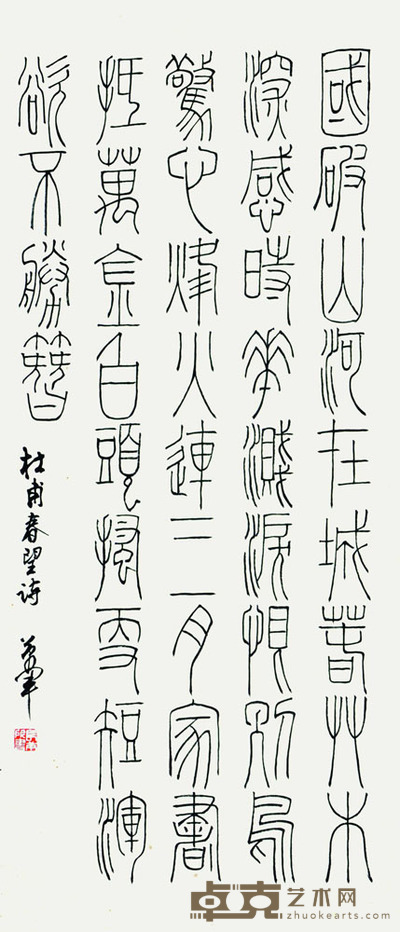 國破山河在城春艸木
深感時花濺淚恨別鳥
驚心烽火連三月家書
抵萬金白頭搔更短渾
欲不勝簪
杜甫春望诗
卓克艺术网
zhuokearts.com